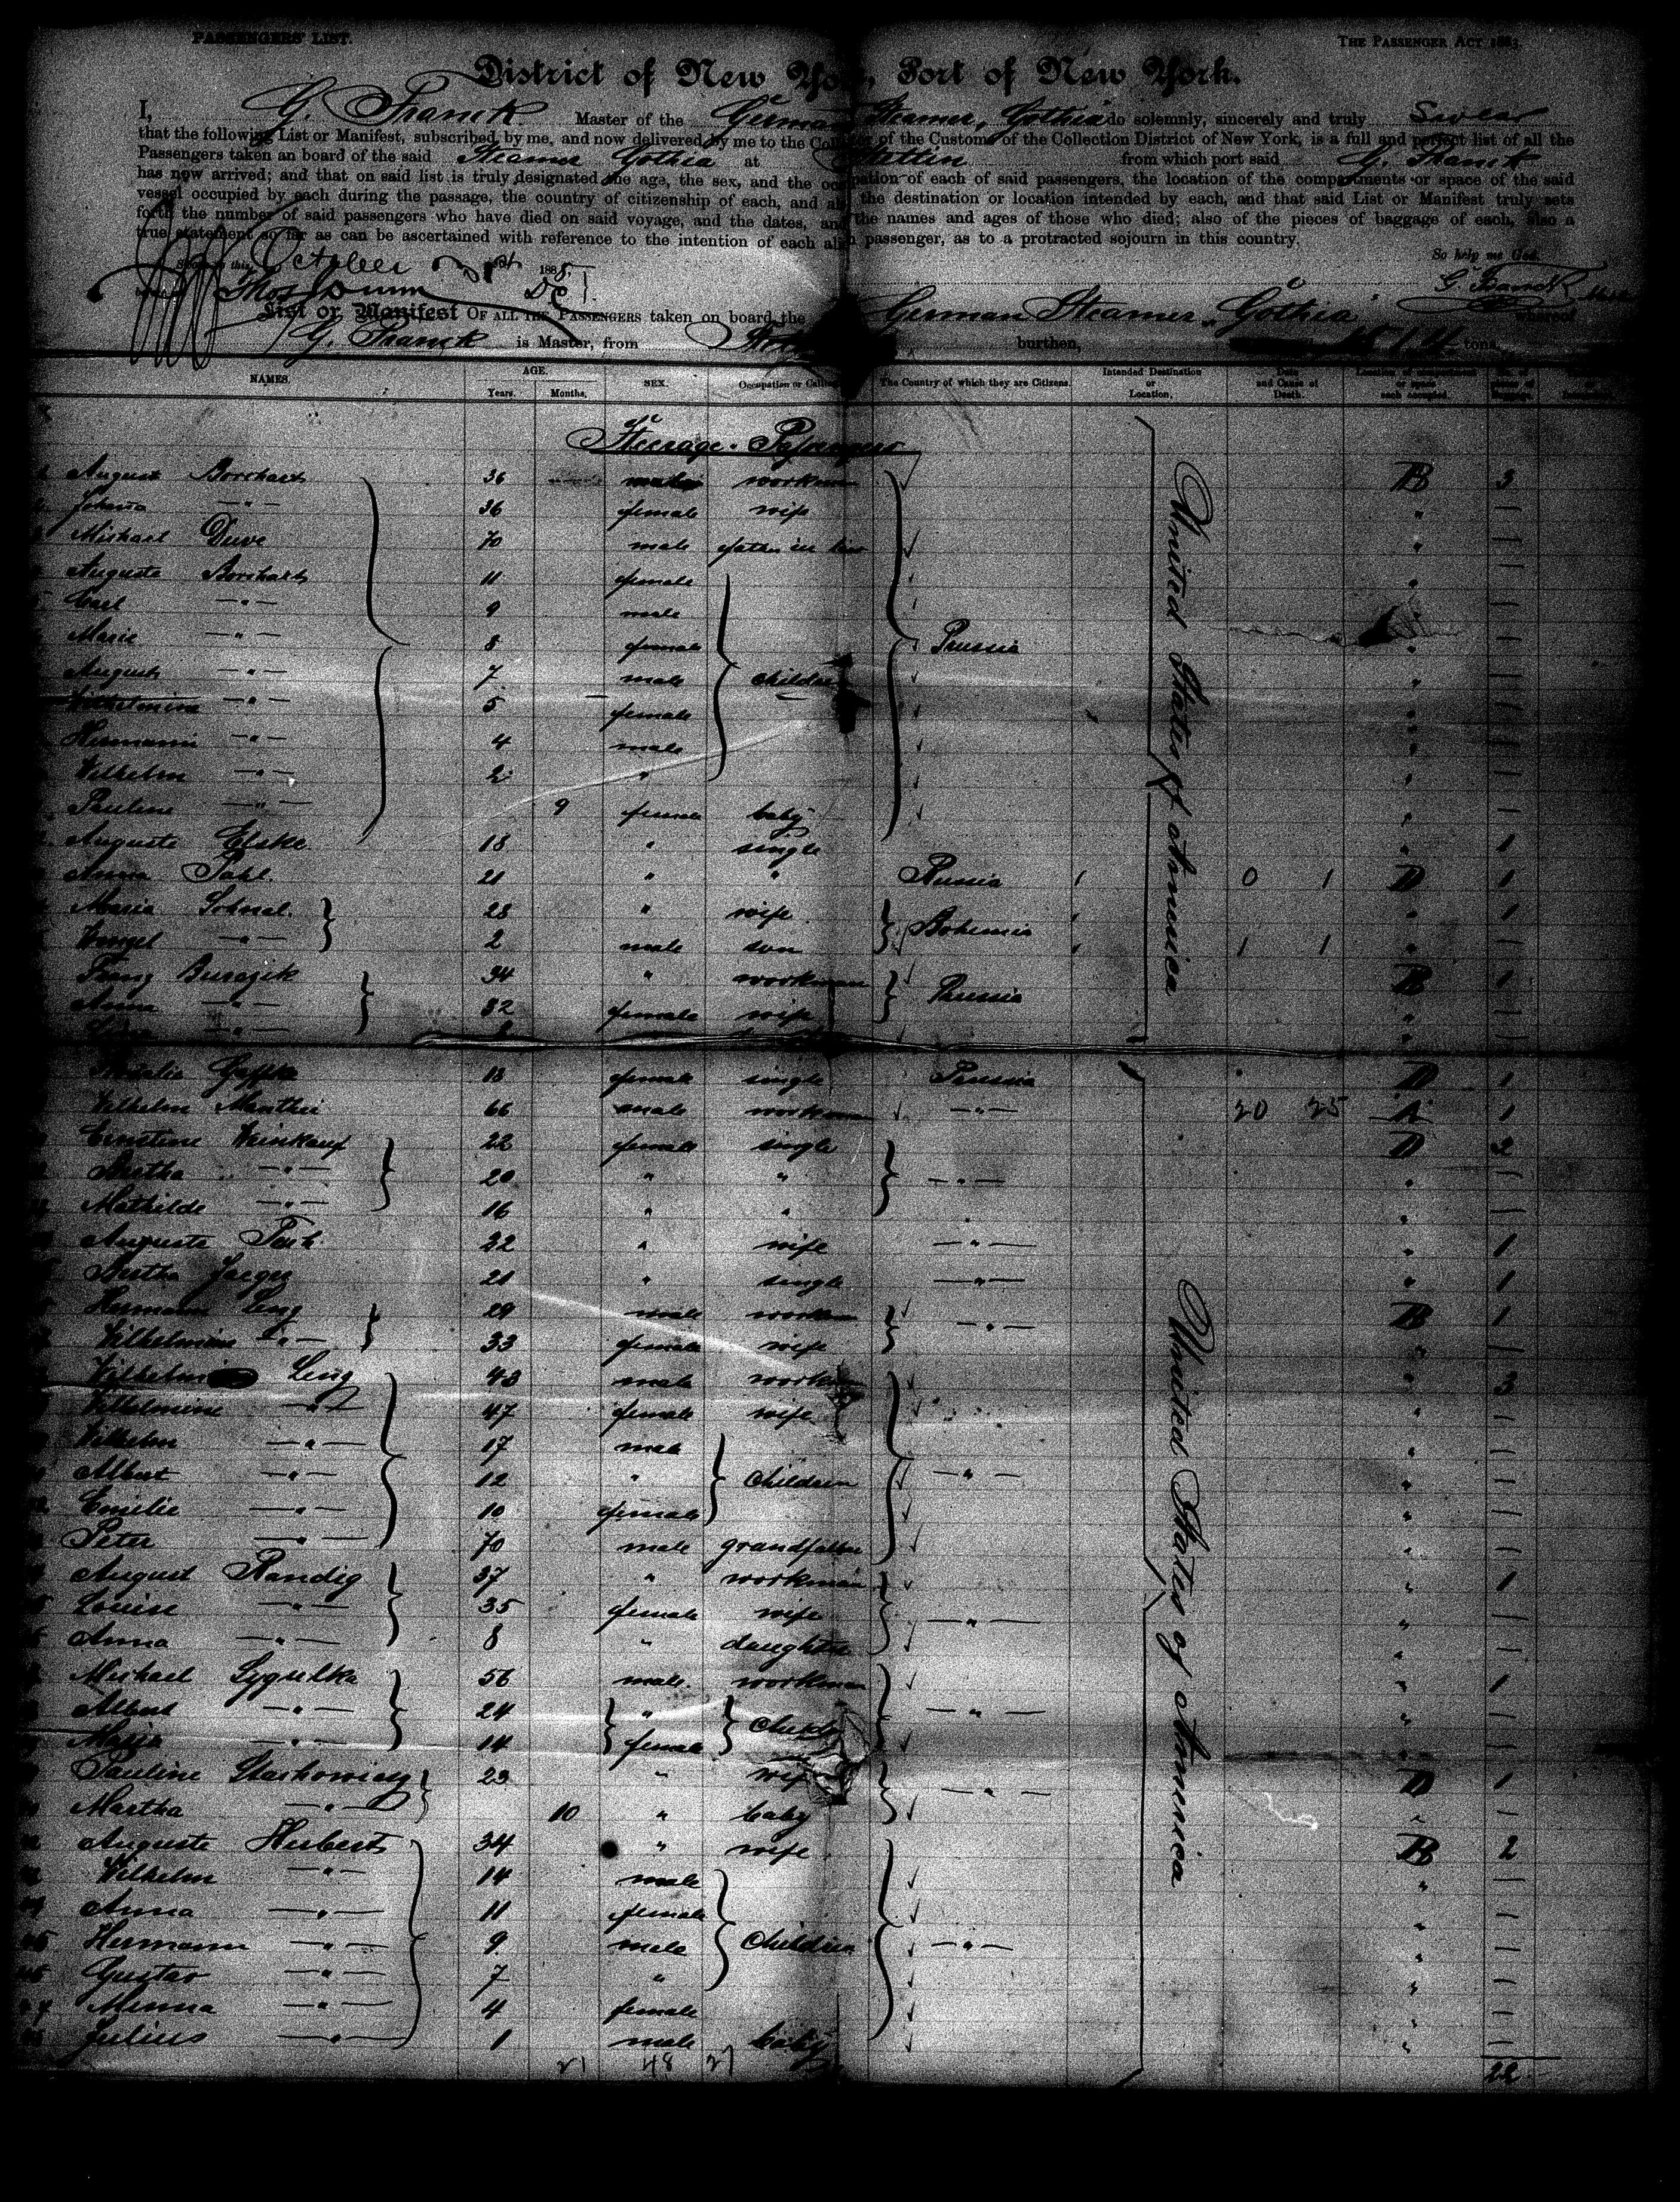 PASSENGERS' LIST.
THE PASSENGER ACT 1883.
District of New York, Port of New York.
I, G. Franck Master of the German Steamer, Gothia do solemnly, sincerely and truly Swear
that the following List or Manifest, subscribed by me, and now delivered by me to the Collector of the Customs of the Collection District of New York, is a full and perfect list of all the
Passengers taken an board of the said Steamer Gothia at Stettin from which port said G. Franck
has now arrived; and that on said list is truly designated the age, the sex, and the occupation of each of said passengers, the location of the compartments or space of the said
vessel occupied by each during the passage, the country of citizenship of each, and also the destination or location intended by each, and that said List or Manifest truly sets
forth the number of said passengers who have died on said voyage, and the dates, and the names and ages of those who died; also of the pieces of baggage of each, also a
true statement so far as can be ascertained with reference to the intention of each alien passenger, as to a protracted sojourn in this country.
So help me God.
Sworn this October 31st 1885
G. Franck
List or Manifest OF ALL THE PASSENGERS taken on board the German Steamer, Gothia whereof
G. Franck is Master, from burthen, tons.
NAMES. AGE. Years. Months. SEX. Occupation or Calling The Country of which they are Citizens. Intended Destination or Location. Date and Cause of Death. Location of compartment or space each occupied.
Steerage-Passengers
August Borchart 36 male workman B 3
Johana -"- 36 female wife " —
Michael Duve 70 male father in law " —
Auguste Borchart 11 female " —
Carl -"- 9 male —
Marie -"- 8 female Prussia " —
August -"- 7 male children " —
Wilhelmine -"- 5 female " —
Hermann -"- 4 male " —
Wilhelm -"- 2 " " —
Pauline -"- 9 female baby " —
Auguste Elske 18 " single " 1
Anna Pahl 21 " " Russia 0 1 D 1
Maria 28 " wife Bohemia " 1
-"- 2 male son 1 1 " —
Franz Burczik 34 " workman Prussia B 1
Anna -"- 32 female wife " —
-"-
United States of America
Gaffke 18 female single Prussia D 1
Wilhelm Manthei 66 male workman -"- 20 25 A 1
Ernestine Weinkauf 22 female single D 2
Bertha -"- 20 " " -"- " —
Mathilde -"- 16 " " " —
Auguste 22 " wife -"- " 1
Bertha Jaeger 21 " single -"- " 1
Hermann Leng 29 male workman -"- B 1
Wilhelmine -"- 33 female wife " —
Wilhelm Leng 43 male workman " 3
Wilhelmine -"- 47 female wife " —
Wilhelm -"- 17 male " —
Albert -"- 12 " children -"- " —
Emilie -"- 10 female " —
Peter -"- 70 male grandfather " —
August Randig 37 " workman " 1
Louise -"- 35 female wife -"- " —
Anna -"- 8 " daughter " —
Michael Sygulka 56 male workman " 1
Albert -"- 24 " childr. -"- " —
Maria -"- 14 female " —
Pauline Stachowicz 23 " wife -"- D 1
Martha -"- 10 " baby " —
Auguste Herbert 34 " wife B 2
Wilhelm -"- 14 male " —
Anna -"- 11 female " —
Hermann -"- 9 male children -"- " —
Gustav -"- 7 " " —
Minna -"- 4 female " —
Julius -"- 1 male baby " —
United States of America
21 48 27 22